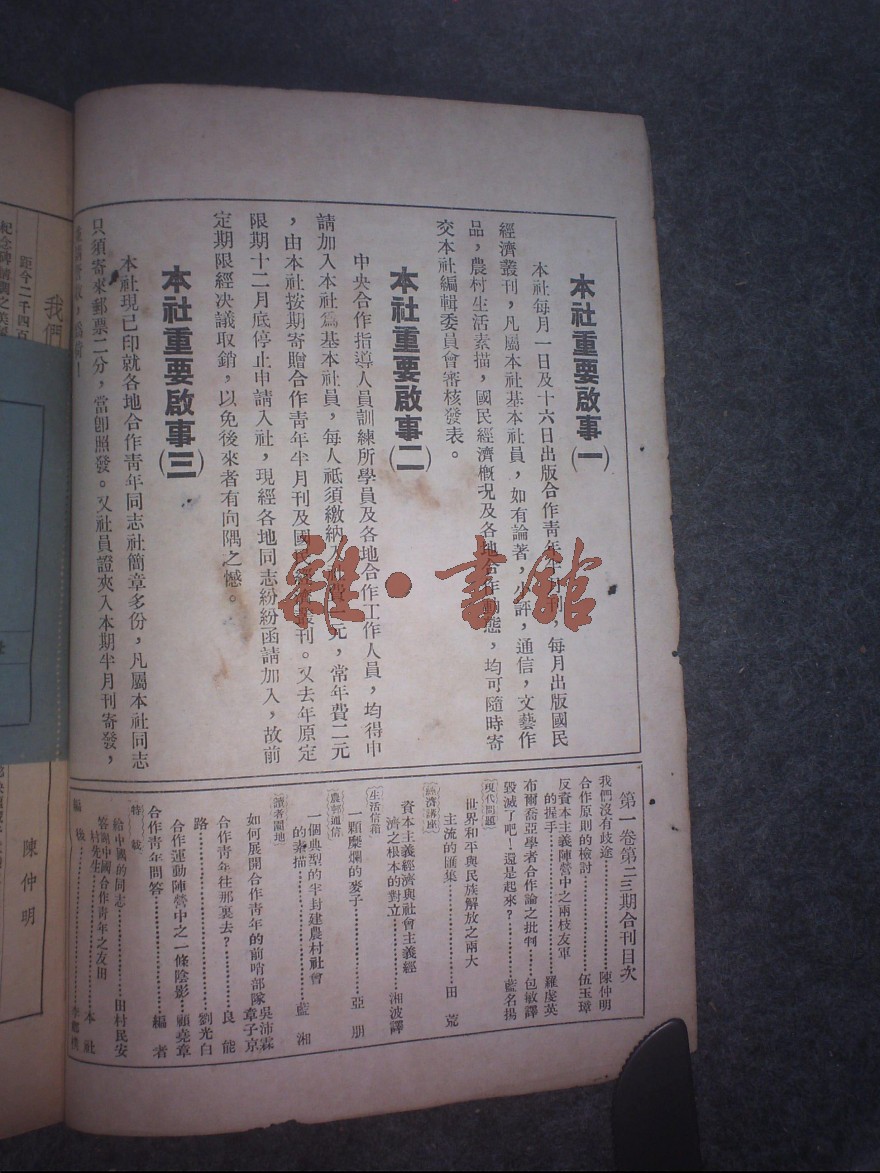 本社重要啟事(一)
本社每月一日及十六日出版合作青年半月刊，每月出版國民
經濟叢刊，凡屬本社基本社員，如有論著，小評，通信，文藝作
品，農村生活素描，國民經濟概況及各地合作動態，均可隨時寄
交本社編輯委員會審核發表。
本社重要啟事(二)
中央合作指導人員訓練所學員及各地合作工作人員，均得申
請加入本社為基本社員，每人祗須繳納入社費一元，常年費二元
，由本社按期寄贈合作青年半月刊及國民經濟叢刊。又去年原定
限期十二月底停止申請入社，現經各地同志紛紛函請加入，故前
定期限經決議取銷，以免後來者有向隅之憾。
本社重要啟事(三)
本社現已印就各地合作青年同志社簡章多份，凡屬本社同志
只須寄來郵票二分，當卽照發。又社員證夾入本期半月刊寄發，
雜·書館
第一卷第二三期合刊目次
我們沒有歧途………陳仲明
合作原則的檢討………伍玉璋
反資本主義陣營中之兩枝友軍
的握手………羅虔英
布爾喬亞學者合作論之批判…包敏譯
毀滅了吧！還是起來？………藍名揚
現代問題
世界和平與民族解放之兩大
主流的匯集………田荒
經濟講座
資本主義經濟與社會主義經
濟之根本的對立………湘波譯
生活信箱
一顆糜爛的麥子………亞朋
農邨通信
一個典型的半封建農村社會
的素描………藍湘
讀者園地
如何展開合作青年的前哨部隊吳沛霖
章子京
合作青年往那裏去？………良能
路………劉光白
合作運動陣營中之一條陰影…顧堯章
合作青年問答………編者
特載
給中國的同志………田村民安
答謝中國合作青年之友田
村先生………本社
編後
我們
距今二千四百
紀念碑
陳仲明
社